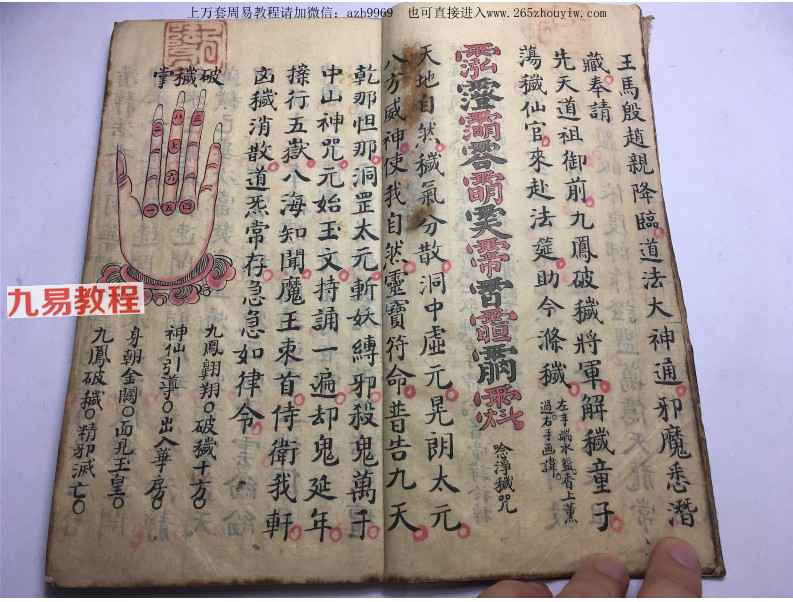 上万套周易教程请加微信：azh9969 也可直接进入www.265zhouyiw.com
王馬殷趙親降臨道法大神通邪魔悉潛
藏奉請
先天道祖御前九鳳破穢將軍解穢童子
蕩穢仙官來赴法筵助令滌穢
左手端水盞香上薰
過右手画諱
唸淨穢咒
天地自然穢氣分散洞中虛元晃朗太元
八方威神使我自然靈寶符命普告九天
乾那怛那洞罡太元斬妖縛邪殺鬼萬千
中山神咒元始玉文持誦一遍却鬼延年
行五嶽八海知聞魔王束首侍衛我軒
凶穢消散道炁常存急急如律令
破穢掌
九鳳翱翔破穢十方
神仙引導出入華房
身朝金闕面孔玉皇
九鳳破穢精邪滅亡
九易教程